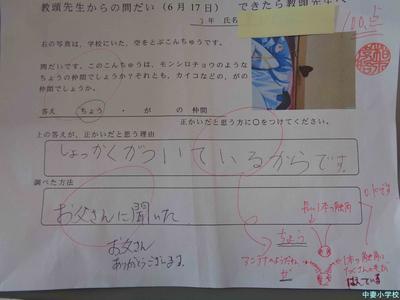 教頭先生からの問だい(6月17日) できたら教頭先生へ
3年 氏名
100点
右の写真は、学校にいた、空をとぶこんちゅうです。
問だいです。このこんちゅうは、モンシロチョウのような
ちょうの仲間でしょうか?それとも、カイコなどの、がの
仲間でしょうか。
答え ちょう ・ が の 仲間
正かいだと思う方に○をつけてください。
上の答えが、正かいだと思う理由
しょっかくがついているからです。
調べた方法
お父さんに聞いた
お父さん
ありがとうございます。
ちょう
長い1本の触角
アンテナのようだね
が
1本の触角に
たくさんの毛が
はえている
中妻小学校